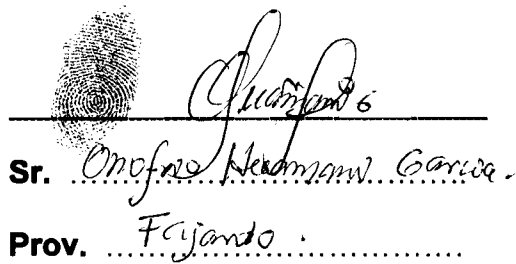 Sr. Onofrio Huamani Garcia.
Prov. Fajardo.